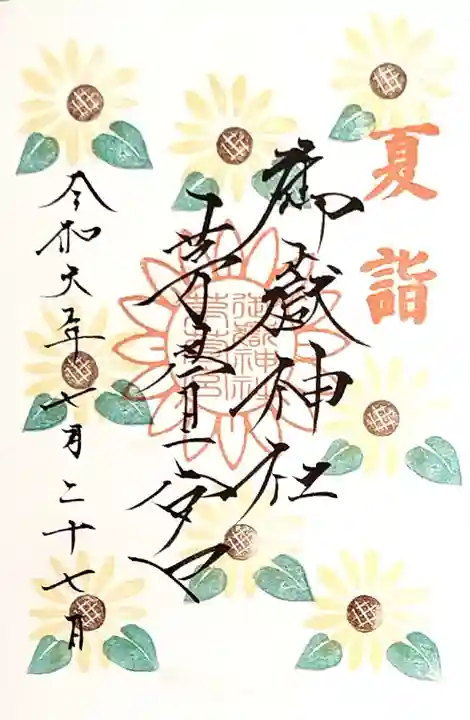 夏詣
御嶽神社
茅萱宮
御嶽神社
茅萱宮
令和六年七月二十七日